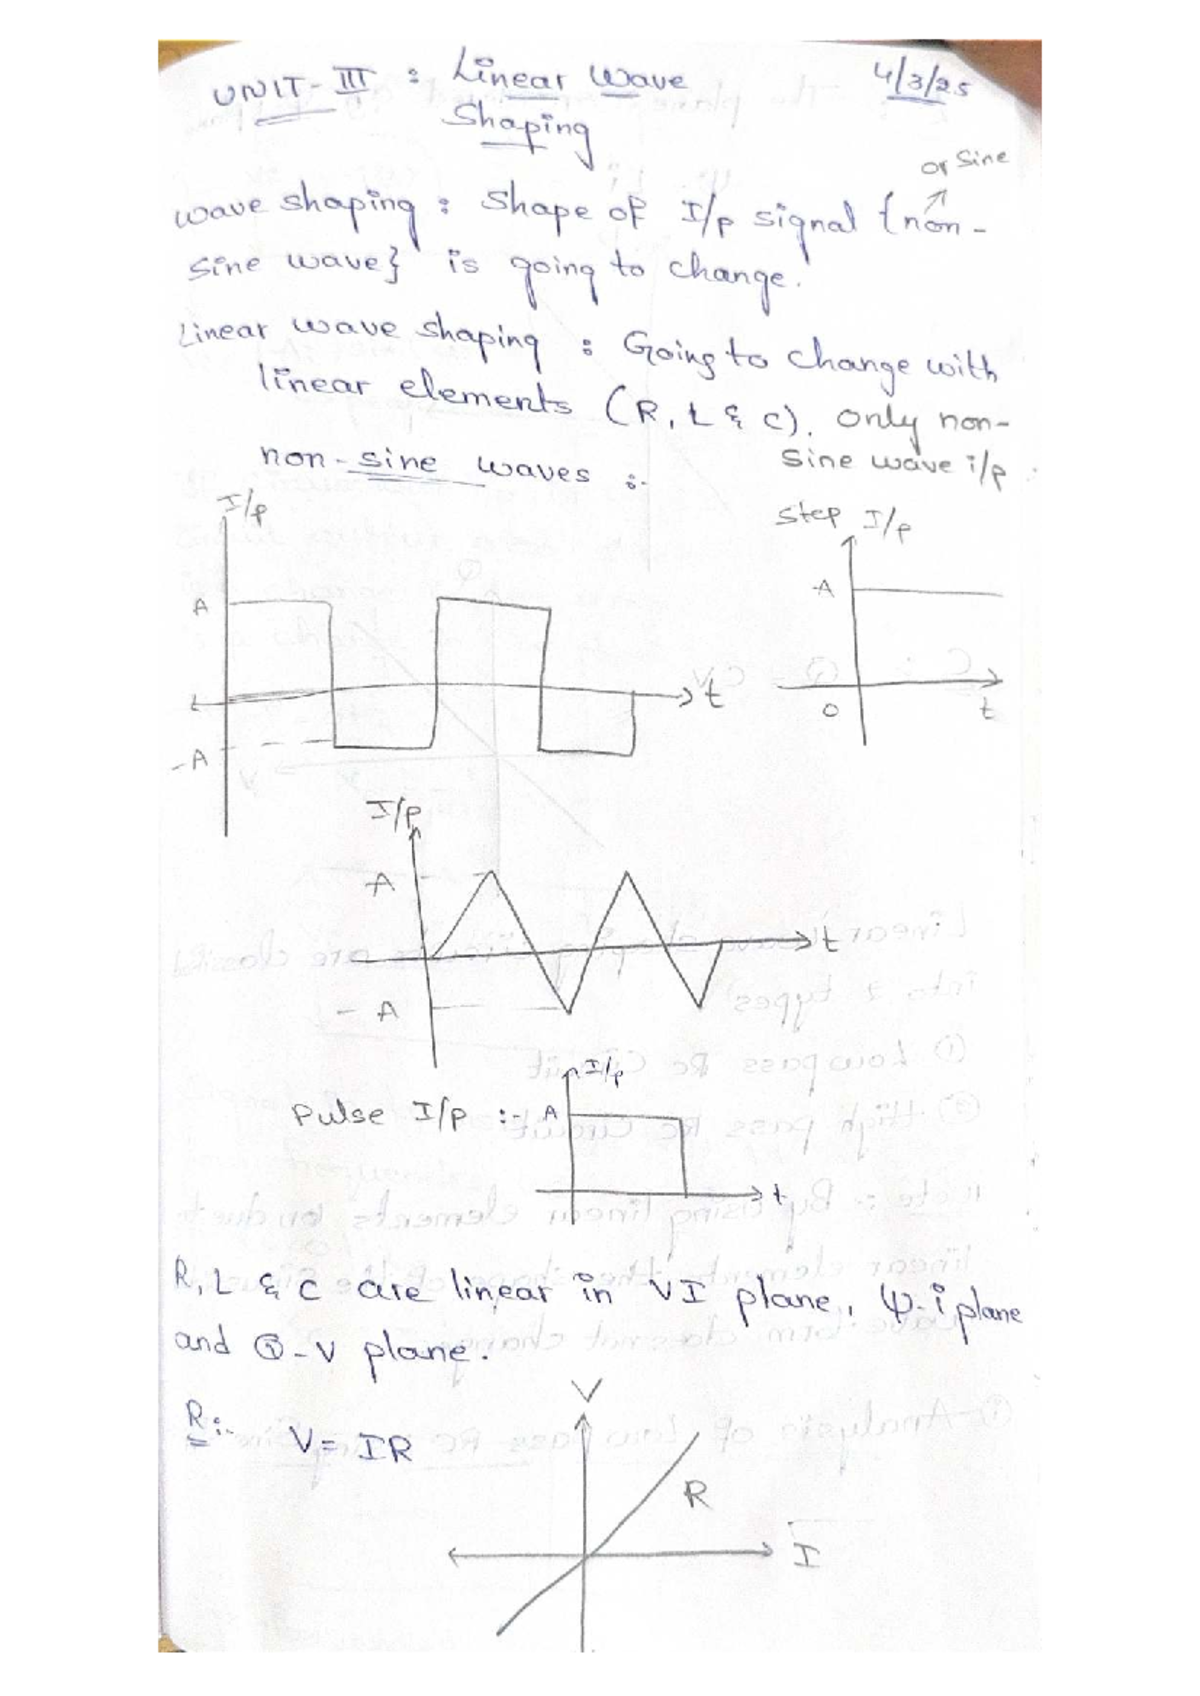 UNIT-III : Linear Wave
Shaping
4/3/25
or Sine
wave shaping : Shape of I/p signal {non-
Sine wave} is going to change.
Linear wave shaping : Going to change with
linear elements (R, L & C). Only non-
Sine wave i/p
non-sine waves :-
I/p
A
-A
t
Step I/p
A
0
t
I/p
A
-A
t
I/p
Pulse I/p :- A
t
R, L & C are linear in VI plane, Ψ-i plane
and Q-V plane.
R:- V = IR
V
R
I